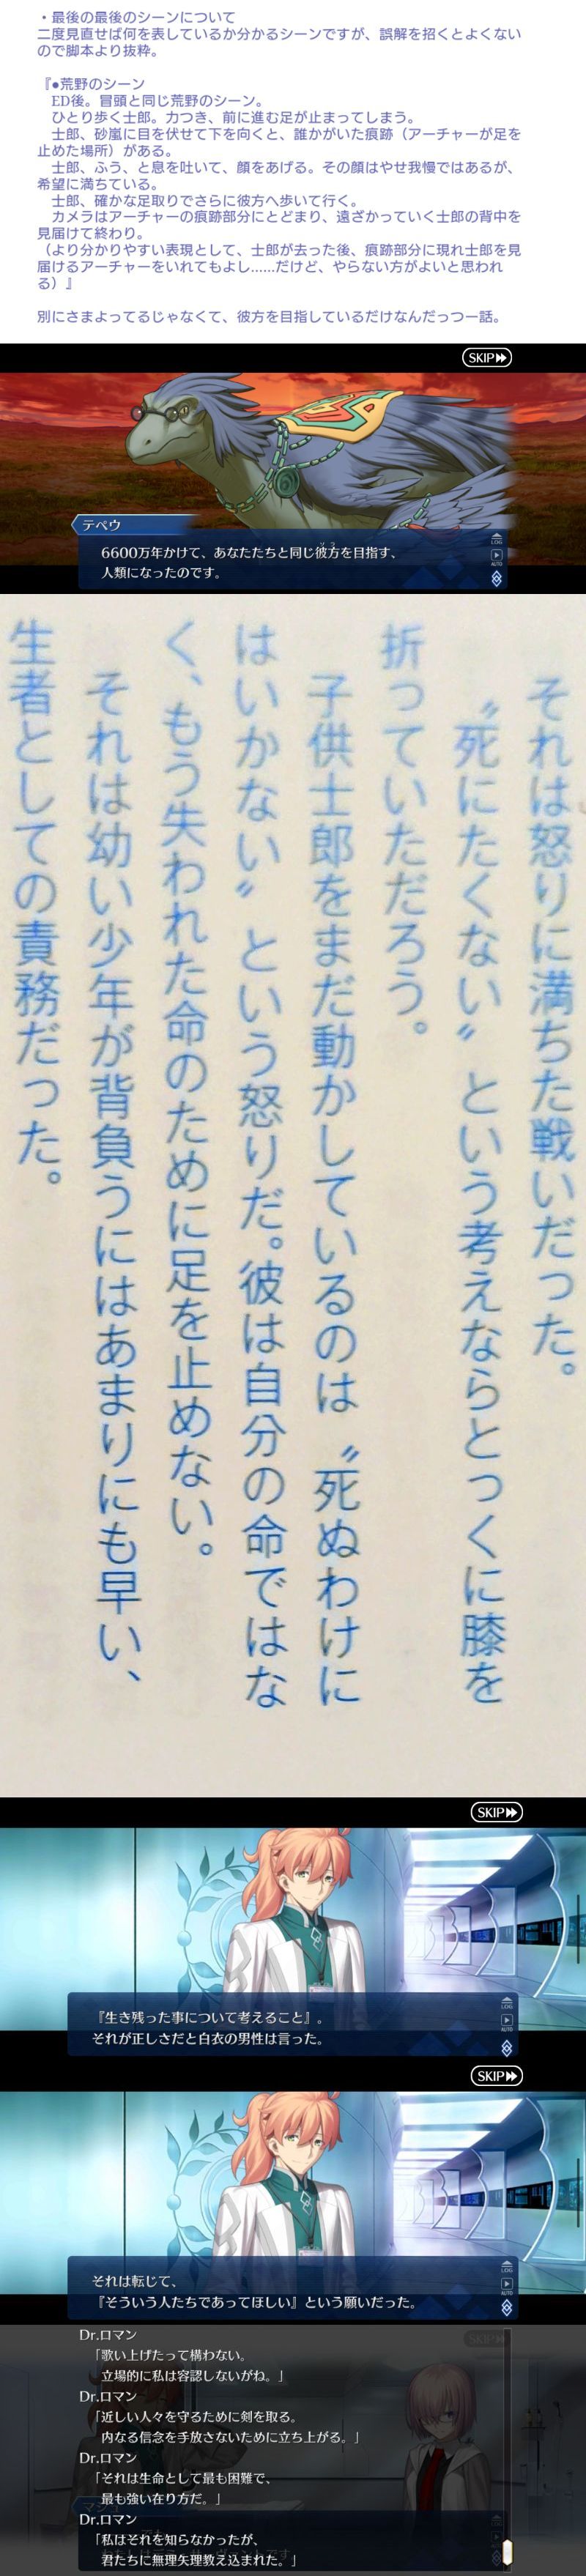 ・最後の最後のシーンについて
二度見直せば何を表しているか分かるシーンですが、誤解を招くとよくない
ので脚本より抜粋。
『●荒野のシーン
ED後。冒頭と同じ荒野のシーン。
ひとり歩く士郎。力つき、前に進む足が止まってしまう。
士郎、砂嵐に目を伏せて下を向くと、誰かがいた痕跡（アーチャーが足を
止めた場所）がある。
士郎、ふう、と息を吐いて、顔をあげる。その顔はやせ我慢ではあるが、
希望に満ちている。
士郎、確かな足取りでさらに彼方へ歩いて行く。
カメラはアーチャーの痕跡部分にとどまり、遠ざかっていく士郎の背中を
見届けて終わり。
（より分かりやすい表現として、士郎が去った後、痕跡部分に現れ士郎を見
届けるアーチャーをいれてもよし……だけど、やらない方がよいと思われ
る）』
別にさまよってるじゃなくて、彼方を目指しているだけなんだっつー話。
SKIP
テペウ
6600万年かけて、あなたたちと同じ彼方を目指す、
人類になったのです。
LOG
AUTO
それは怒りに満ちた戦いだった。
〝死にたくない〟という考えならとっくに膝を
折っていただろう。
子供士郎をまだ動かしているのは〝死ぬわけに
はいかない〟という怒りだ。彼は自分の命ではな
く、もう失われた命のために足を止めない。
それは幼い少年が背負うにはあまりにも早い、
生者としての責務だった。
SKIP
『生き残った事について考えること』。
それが正しさだと白衣の男性は言った。
LOG
AUTO
SKIP
それは転じて、
『そういう人たちであってほしい』という願いだった。
LOG
AUTO
SKIP
Dr.ロマン
「歌い上げたって構わない。
立場的に私は容認しないがね。」
Dr.ロマン
「近しい人々を守るために剣を取る。
内なる信念を手放さないために立ち上がる。」
Dr.ロマン
「それは生命として最も困難で、
最も強い在り方だ。」
Dr.ロマン
「私はそれを知らなかったが、
君たちに無理矢理教え込まれた。」